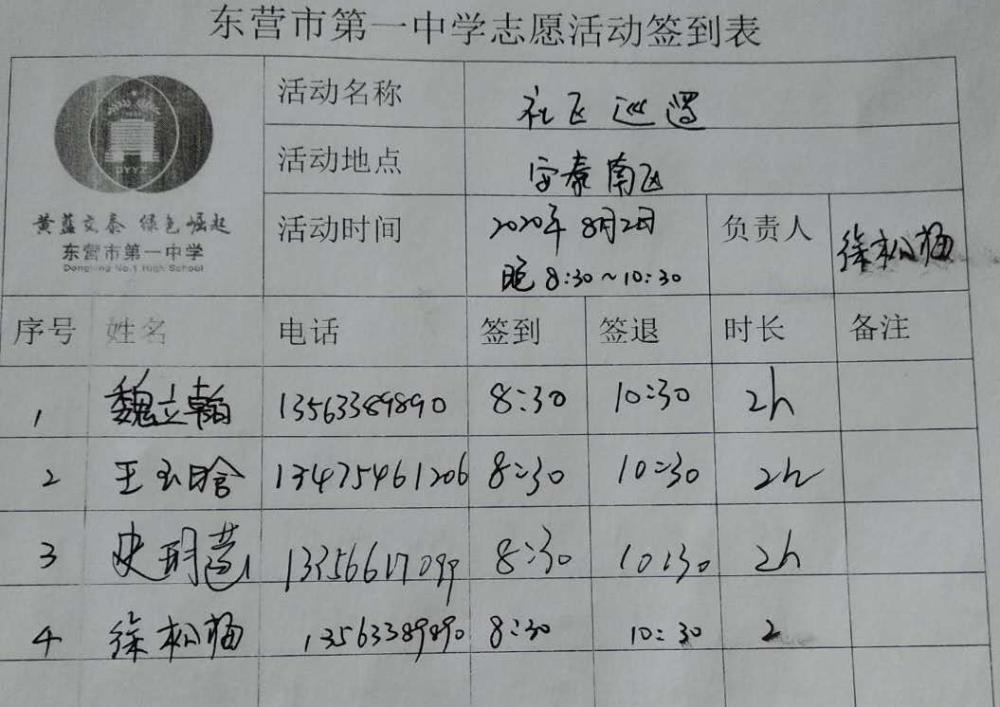 东营市第一中学志愿活动签到表
活动名称 社区巡逻
活动地点 安泰南区
黄蓝交泰 绿色崛起
东营市第一中学
Dongying No.1 High School
活动时间 2020年8月2日 负责人 徐松梅
晚 8:30~10:30
序号 姓名 电话 签到 签退 时长 备注
1 魏立翰 13563389890 8:30 10:30 2h
2 王玉晗 13475461206 8:30 10:30 2h
3 史玥 8:30 10:30 2h
4 徐松梅 13563389890 8:30 10:30 2